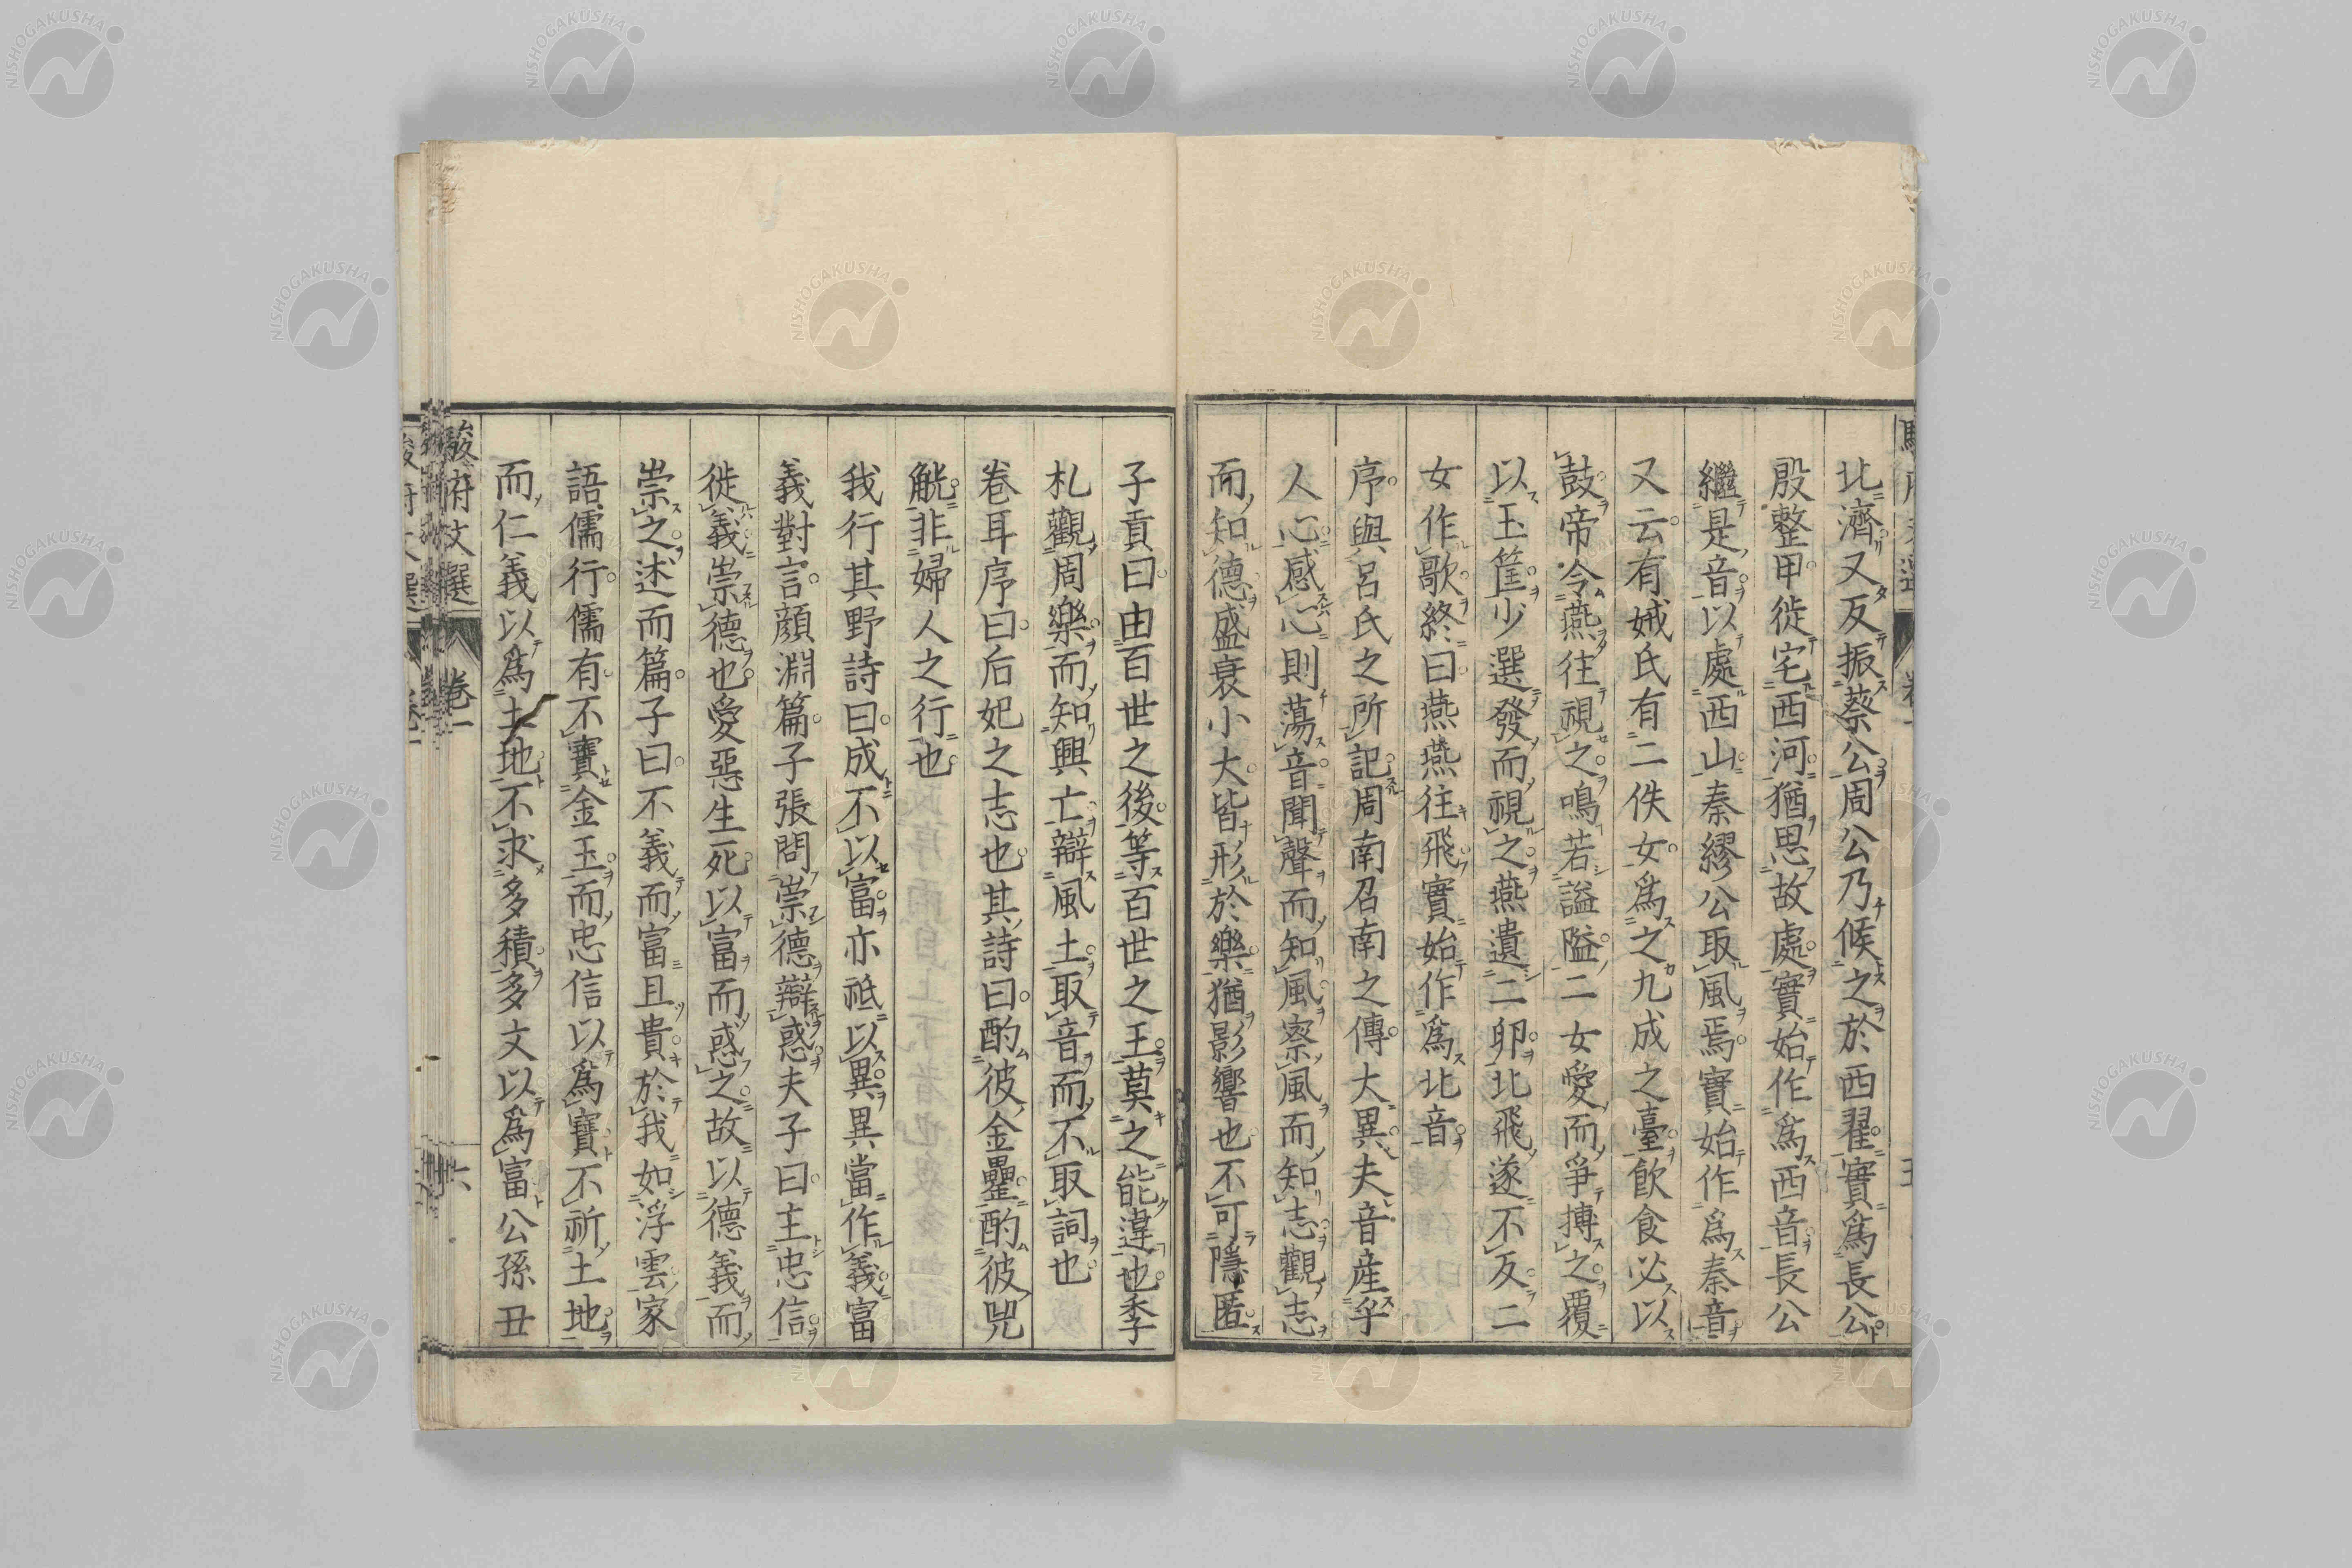 北濟又反振蔡公周公乃候之於西翟實爲長公
殷整甲徙宅西河猶思故處實始作爲西音長公
繼是音以處西山秦繆公取風焉實始作爲秦音
又云有娀氏有二佚女爲之九成之臺飮食必以
鼓帝令燕往視之鳴若謚隘二女愛而爭搏之覆
以玉筐少選發而視之燕遺二卵北飛遂不反二
女作歌終曰燕燕往飛實始作爲北音
序與呂氏之所記周南召南之傳大異夫音産乎
人心感心則蕩音聞聲而知風察風而知志觀志
而知德盛衰小大皆形於樂猶影響也不可隱匿
子貢曰由百世之後等百世之王莫之能違也季
札觀周樂而知興亡辯風土取音而不取詞也
卷耳序曰后妃之志也其詩曰酌彼金罍酌彼兕
觥非婦人之行也
我行其野詩曰成不以富亦祗以異異當作義富
義對言顔淵篇子張問崇德辯惑夫子曰主忠信
徙義崇德也愛惡生死以富而惑之故以德義而
崇之述而篇子曰不義而富且貴於我如浮雲家
語儒行儒有不寶金玉而忠信以爲寶不祈土地
而仁義以爲土地不求多積多文以爲富公孫丑
駿府文選 卷一 六
NISHOGAKUSHA